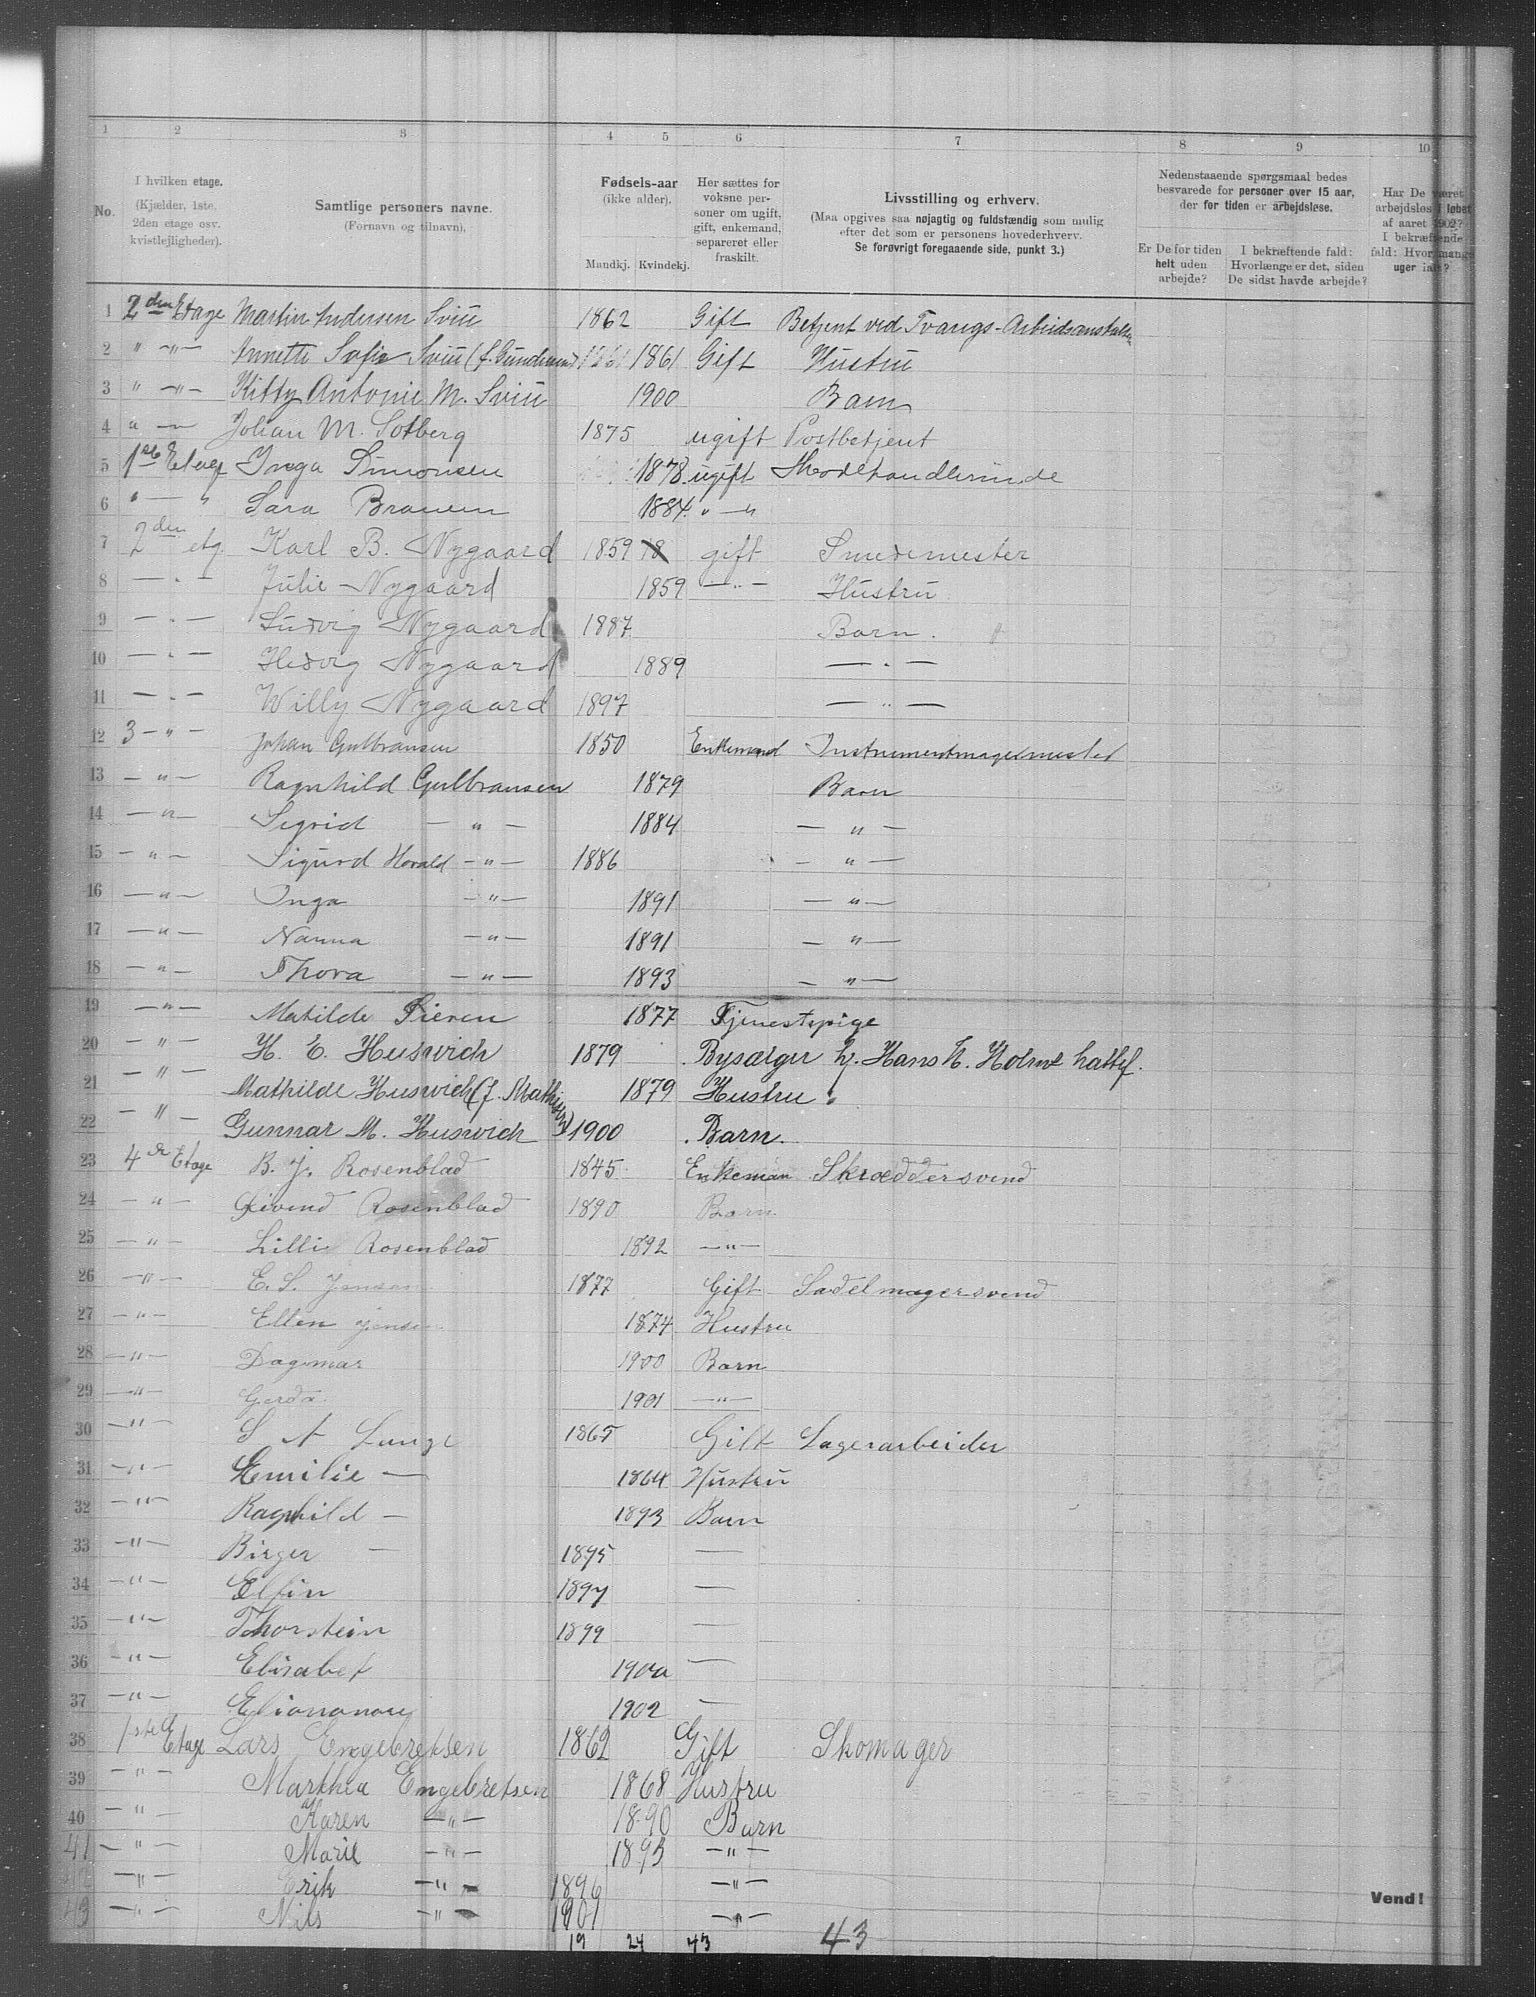 1 2 3 4 5 6 7 8 9 10
No.
I hvilken etage.
(Kjælder, 1ste,
2den etage osv.
kvistlejligheder).
Samtlige personers navne.
(Fornavn og tilnavn).
Fødsels-aar
(ikke alder).
Mandkj. Kvindekj.
Her sættes for
voksne per-
soner om ugift,
gift, enkemand,
separeret eller
fraskilt.
Livsstilling og erhverv.
(Maa opgives saa nøjagtig og fuldstændig som mulig
efter det som er personens hovederhverv.
Se forøvrigt foregaaende side, punkt 3.)
Nedenstaaende spørgsmaal bedes
besvarede for personer over 15 aar,
der for tiden er arbejdsløse.
Er De for tiden
helt uden
arbejde?
I bekræftende fald:
Hvorlænge er det, siden
De sidst havde arbejde?
Har De været
arbejdsløs i løbet
af aaret 1902?
I bekræftende
fald: Hvor mange
uger ialt?
1 2den Etage Martin Andersen Sviu 1862 Gift Betjent ved Tvangs-Arbeidsanstalten
2 " —"— Annette Sofie Sviu 1861 Gift Hustru
3 " —"— Kitty Antonie M. Sviu 1900 Barn
4 " — Johan M. Solberg 1875 ugift Postbetjent
5 1ste Etage Inga Simonsen 1878 ugift Modehandlerinde
6 " — " Sara Brauem 1884 " —"
7 2den etg. Karl B. Nygaard 1859 18 gift Smedemester
8 — " — Julie Nygaard 1859 —"— Hustru
9 — " — Ludvig Nygaard 1887 Barn.
10 — " — Hedvig Nygaard 1889 — " —
11 — " — Willy Nygaard 1897 — " —
12 3 —"— Johan Gulbransen 1850 Enkemand Instrumentmagermester
13 —"— Ragnhild Gulbransen 1879 Barn
14 —"— Sigrid — " — 1884 — " —
15 —"— Sigurd Harald —"— 1886 — " —
16 —"— Inga —"— 1891 — " —
17 —"— Nanna —"— 1891 — " —
18 —"— Thora —"— 1893 — " —
19 —"— Matilde Sieren 1877 Tjenestepige
20 —"— H. E. Huswich 1879 Bysælger hj. Hans H. Holme hattef.
21 —"— Mathilde Huswich (f. Mathisen) 1879 Hustru
22 —"— Gunnar M. Huswich 1900 Barn.
23 4de Etage B. J. Rosenblad 1845 Enkeman Skræddersvend
24 " Eivend Rosenblad 1890 Barn
25 —"— Lillie Rosenblad 1892 —"—
26 —"— E. S. Jensen 1877 Gift Sadelmagersvend
27 —"— Ellen Jensen 1874 Hustru
28 —"— Dagmar 1900 Barn
29 —"— Gerda 1901 —"—
30 —"— S A Lunge 1865 Gift Lagerarbeider
31 —"— Emilie — 1864 Hustru
32 —"— Ragnhild — 1893 Barn
33 —"— Birger — 1895 —
34 —"— Elfin 1897 —
35 —"— Thorstein 1899 —
36 —"— Elisabet 1900 —
37 —"— 1902 —
38 1ste Etage Lars Engebretsen 1862 Gift Skomager
39 —"— Marthea Engebretsen 1868 Hustru
40 —"— Karen —"— 1890 Barn
41 —"— Marie —"— 1893 —"—
42 —"— Erik —"— 1896 —"—
43 —"— Nils —"— 1901 —"—
Vend!
19 24 43 43